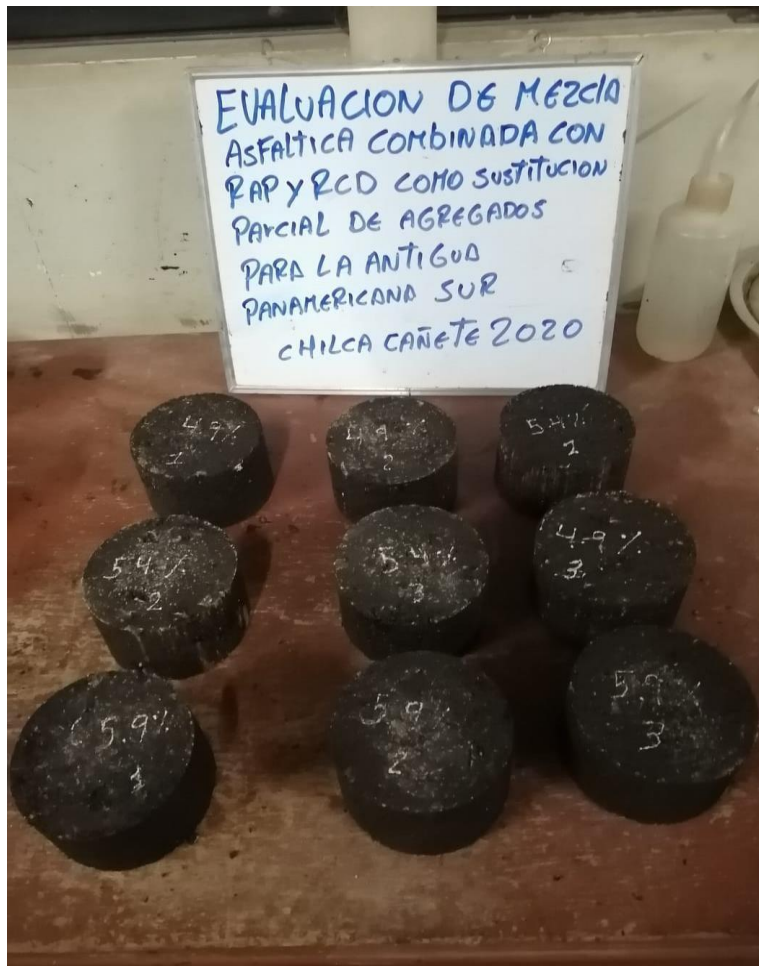 EVALUACION DE MEZCLA
ASFALTICA COMBINADA CON
RAP Y RCD COMO SUSTITUCION
PARCIAL DE AGREGADOS
PARA LA ANTIGUA
PANAMERICANA SUR
CHILCA CAÑETE 2020
49%
1
49%
2
54%
1
54%
2
54%
3
4.9%
3
5.9%
1
59%
2
5.9%
3